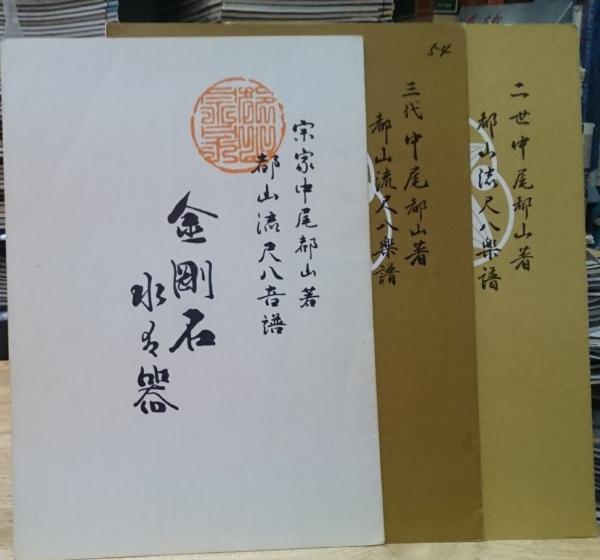 宗家中尾都山著
都山流尺八音譜
金剛石
水は器
54
三代中尾都山著
都山流尺八楽譜
二世中尾都山著
都山流尺八楽譜